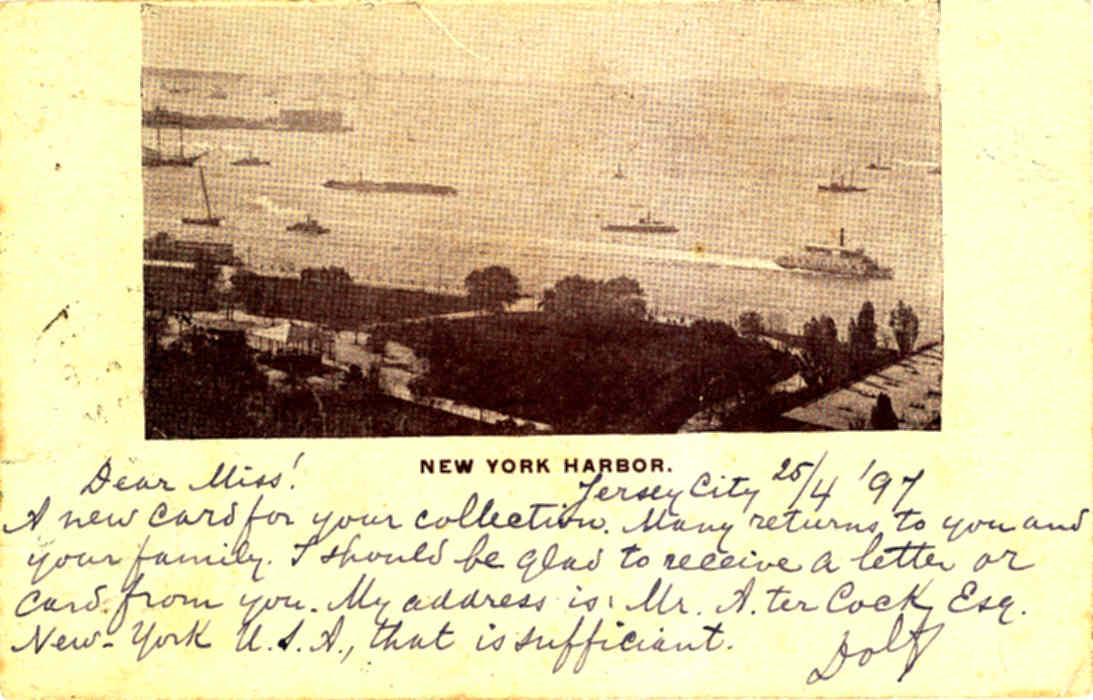 NEW YORK HARBOR.
Dear Miss!
Jersey City 25/4 '97
A new card for your collection. Many returns to you and
your family. I should be glad to receive a letter or
card from you. My address is: Mr. A. ter Cock, Esq.
New-York U.S.A., that is sufficiant.
Dolf